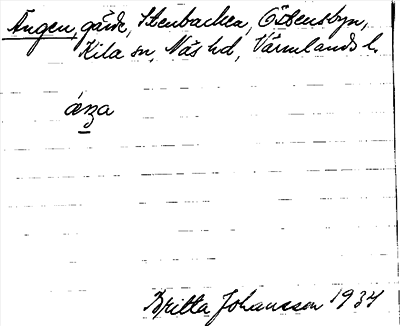 Ängen, gård, Stenbacka, Götensbyn,
Kila sn, Näs hd, Värmlands l.
áŋa
Britta Johansson 1934